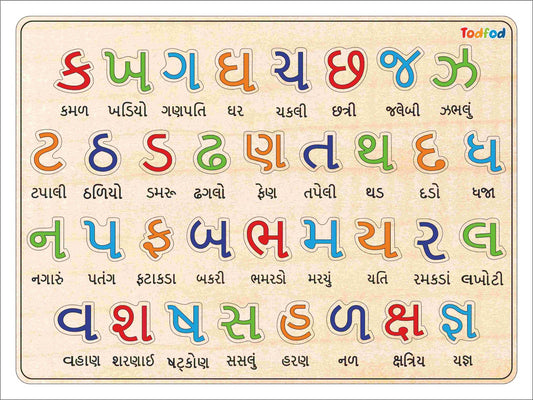 Todfod
ક ખ ગ ઘ ચ છ જ ઝ
કમળ ખડિયો ગણપતિ ઘર ચકલી છત્રી જલેબી ઝભલું
ટ ઠ ડ ઢ ણ ત થ દ ધ
ટપાલી ઠળિયો ડમરૂ ઢગલો ફેણ તપેલી થડ દડો ધજા
ન પ ફ બ ભ મ ય ર લ
નગારું પતંગ ફટાકડા બકરી ભમરડો મરચું યતિ રમકડાં લખોટી
વ શ ષ સ હ ળ ક્ષ જ્ઞ
વહાણ શરણાઈ ષટ્કોણ સસલું હરણ નળ ક્ષત્રિય યજ્ઞ